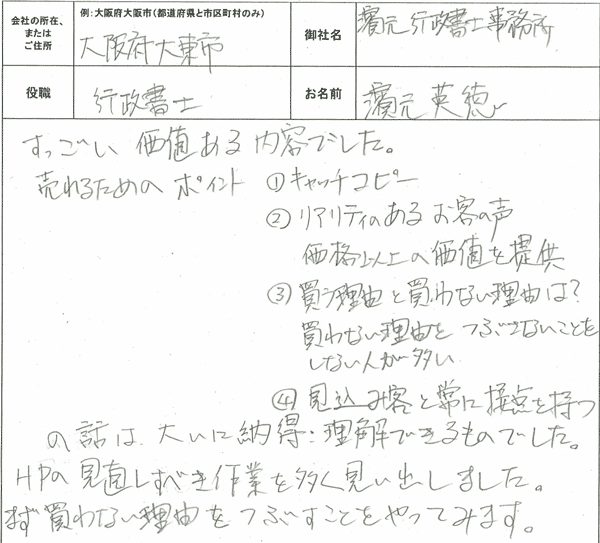 会社の所在、
または
ご住所
例:大阪府大阪市(都道府県と市区町村のみ)
大阪府大東市
御社名
濱元行政書士事務所
役職
行政書士
お名前
濱元 英徳
すっごい 価値ある内容でした。
売れるための ポイント ①キャッチコピー
②リアリティのある お客の声
価格以上の価値を提供
③買う理由と買わない理由は?
買わない理由を つぶさないことを
しない人が多い
④見込み客と常に接点を持つ
の話は、大いに納得:理解できるものでした。
HPの見直しすべき作業を多く見い出しました。
まず買わない理由をつぶすことをやってみます。